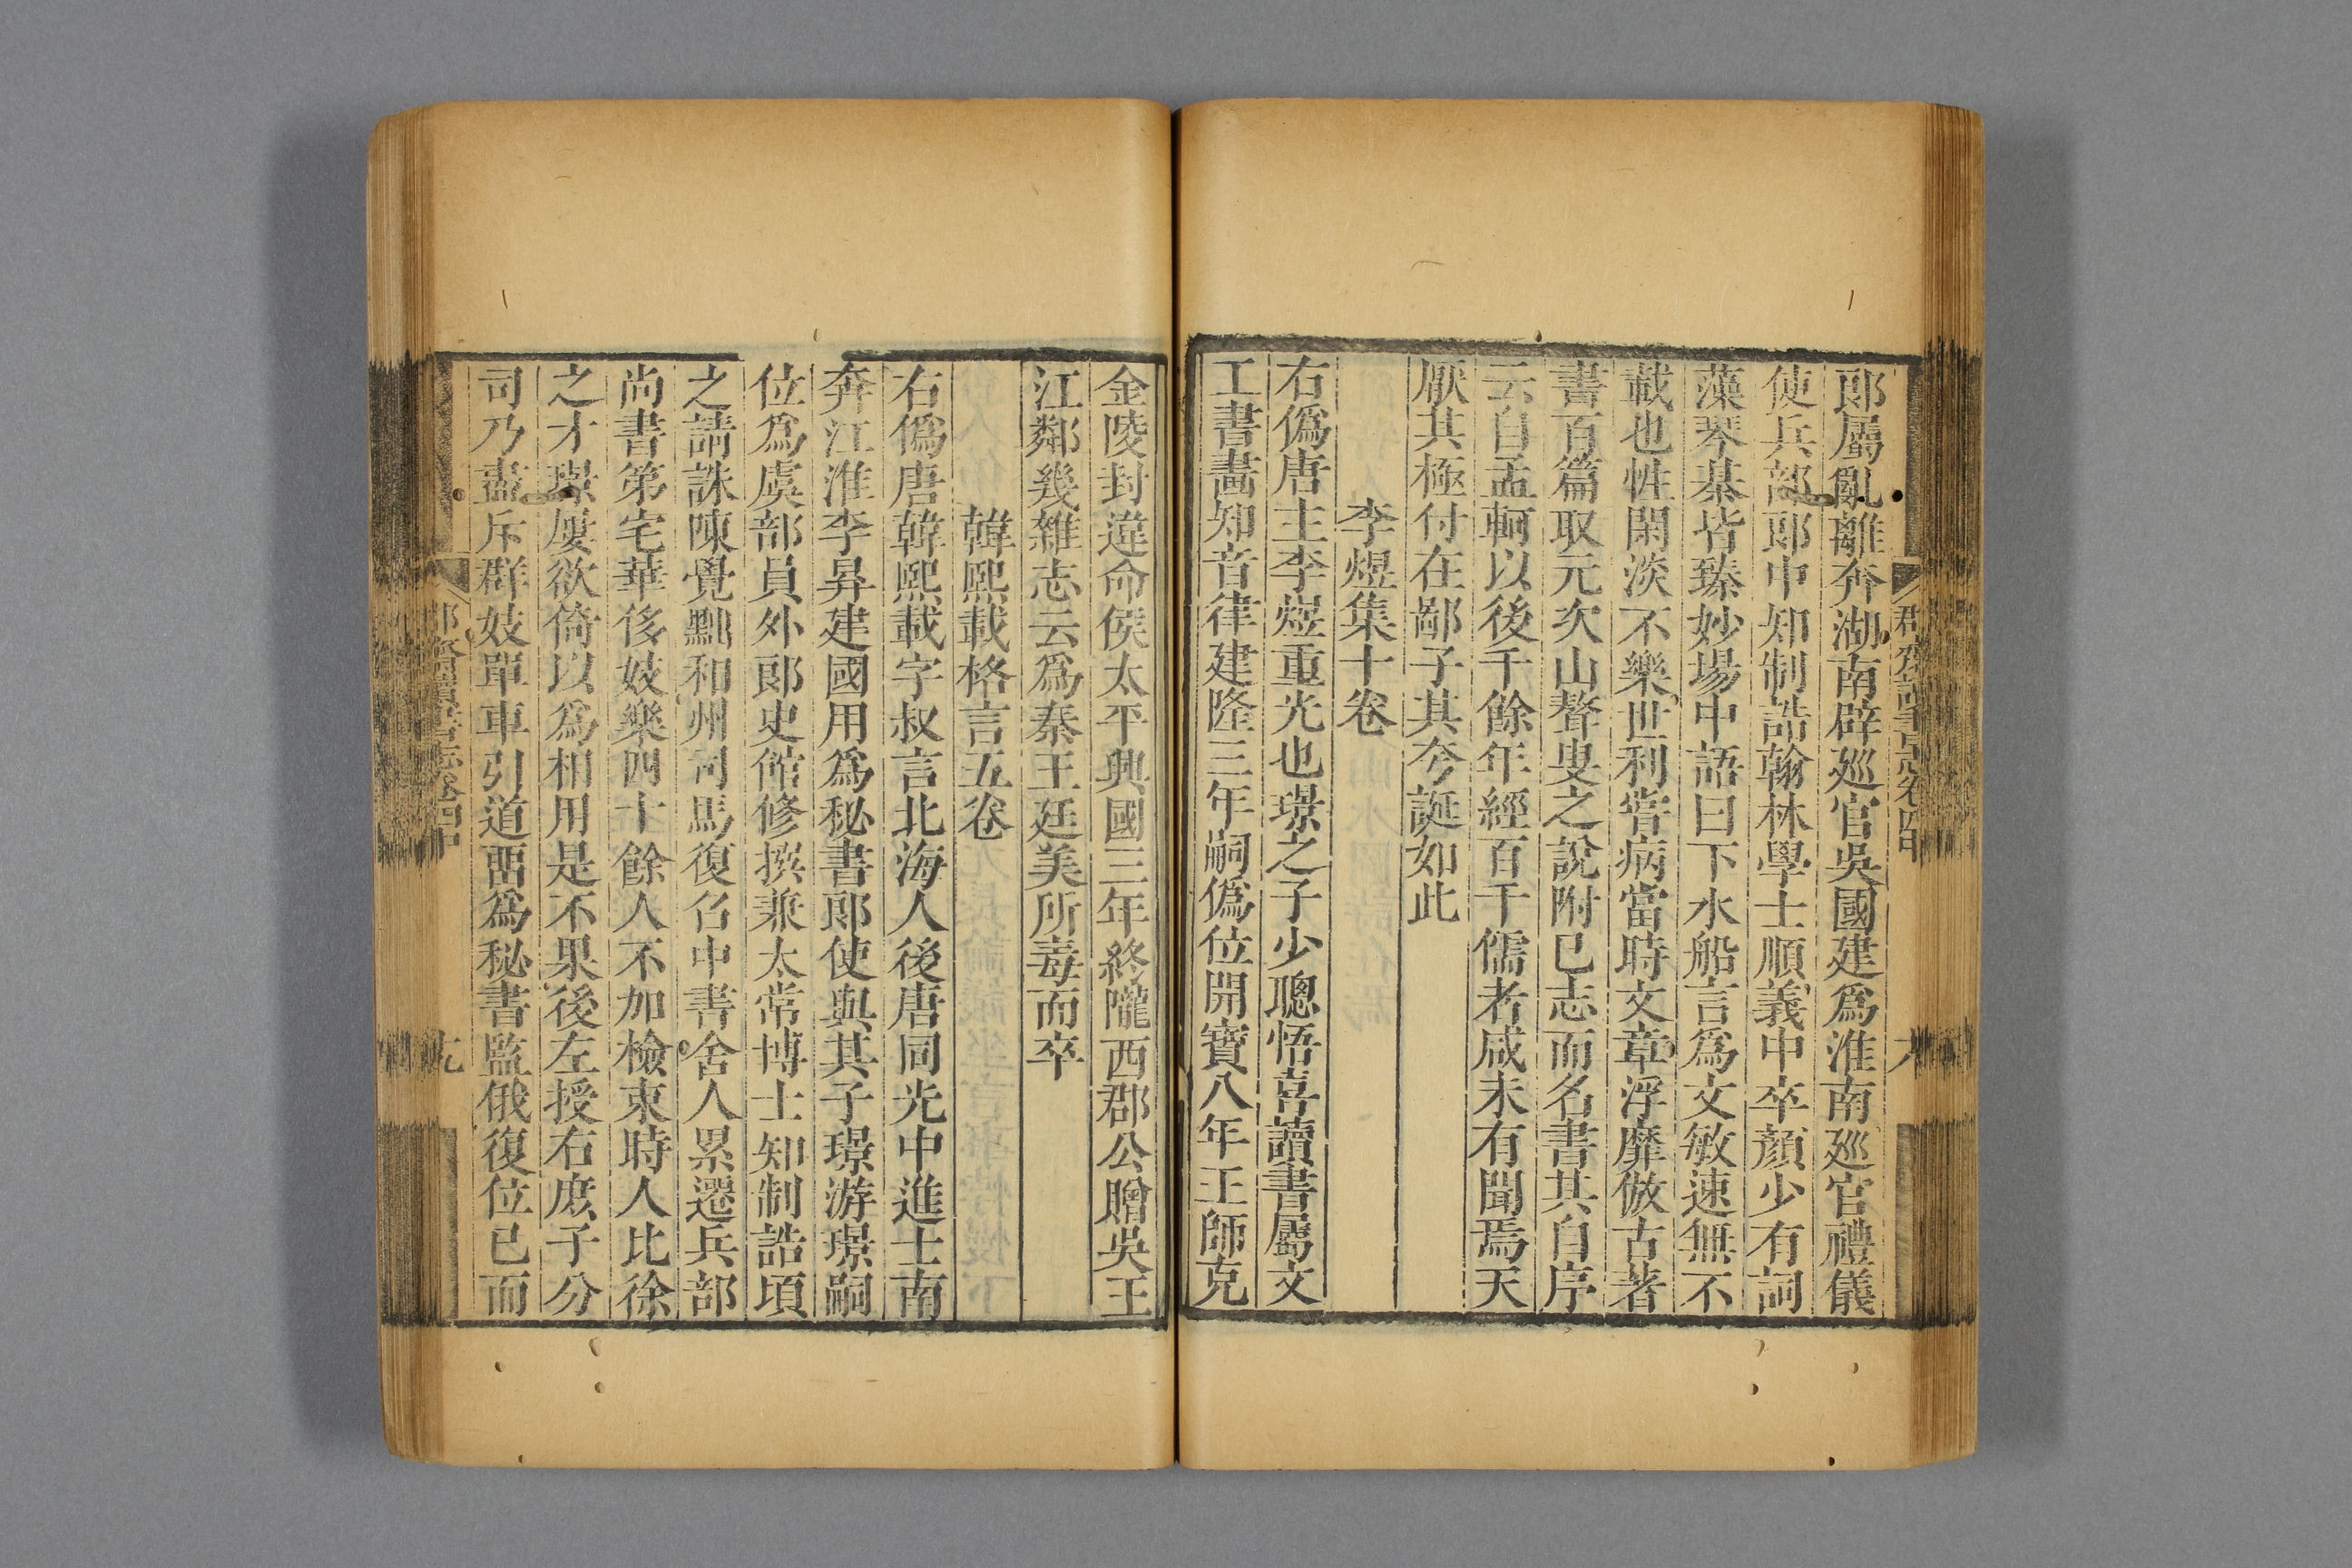 郎屬亂離奔湖南辟巡官吳國建爲淮南巡官禮儀
使兵部郎中知制誥翰林學士順義中卒顏少有詞
藻琴棊皆臻妙場中語曰下水船言爲文敏速無不
載也性閑淡不樂世利嘗病當時文章浮靡倣古著
書百篇取元次山聱叟之說附已志而名書其自序
云自孟軻以後千餘年經百千儒者咸未有聞焉天
厭其極付在鄙子其夸誕如此
李煜集十卷
右僞唐主李煜重光也璟之子少聰悟喜讀書屬文
工書畵知音律建隆三年嗣僞位開寶八年王師克
金陵封違命侯太平興國三年終隴西郡公贈吳王
江鄰幾雜志云爲秦王廷美所毒而卒
韓熙載格言五卷
右僞唐韓熙載字叔言北海人後唐同光中進士南
奔江淮李昪建國用爲秘書郎使與其子璟游璟嗣
位爲虞部員外郎史館修撰兼太常博士知制誥頃
之請誅陳覺黜和州司馬復召中書舍人累遷兵部
尚書第宅華侈妓樂四十餘人不加檢束時人比徐
之才璟屢欲倚以爲相用是不果後左授右庶子分
司乃盡斥群妓單車引道畱爲秘書監俄復位已而